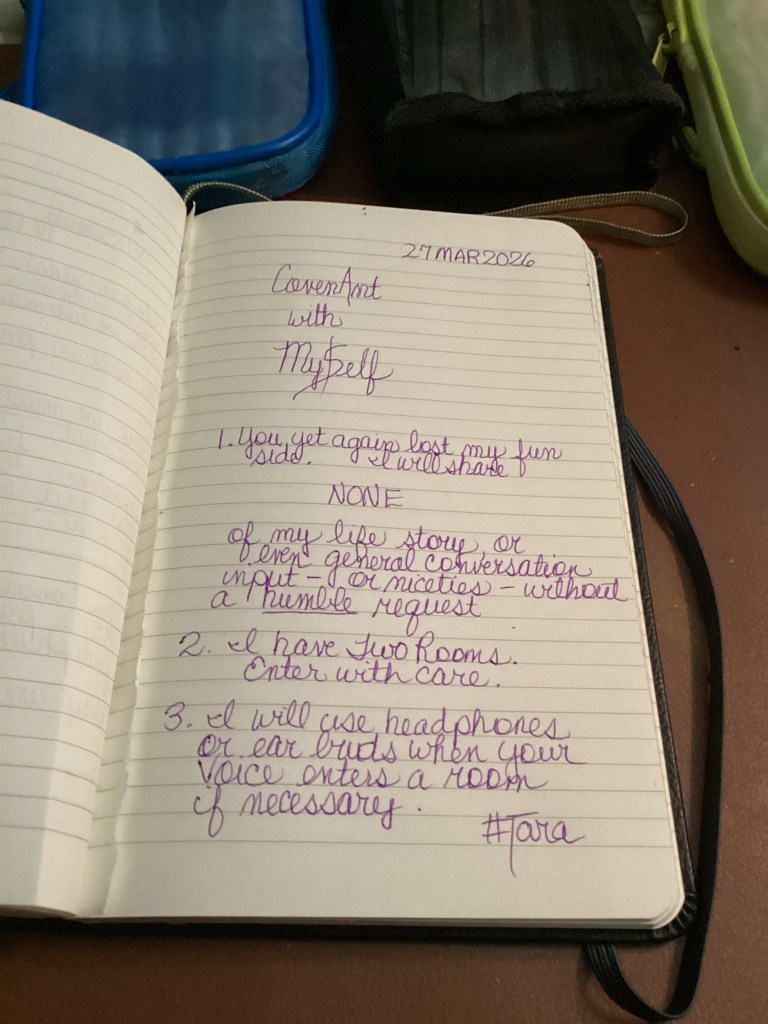 27 MAR 2026
CovenAnt
with
MySelf
1. You, yet again lost my fun
side. I will share
NONE
of my life story, or
even general conversation
input - or niceties - without
a humble request
2. I have Two Rooms.
Enter with care.
3. I will use headphones
or ear buds when your
Voice enters a room
if necessary.
#Tara